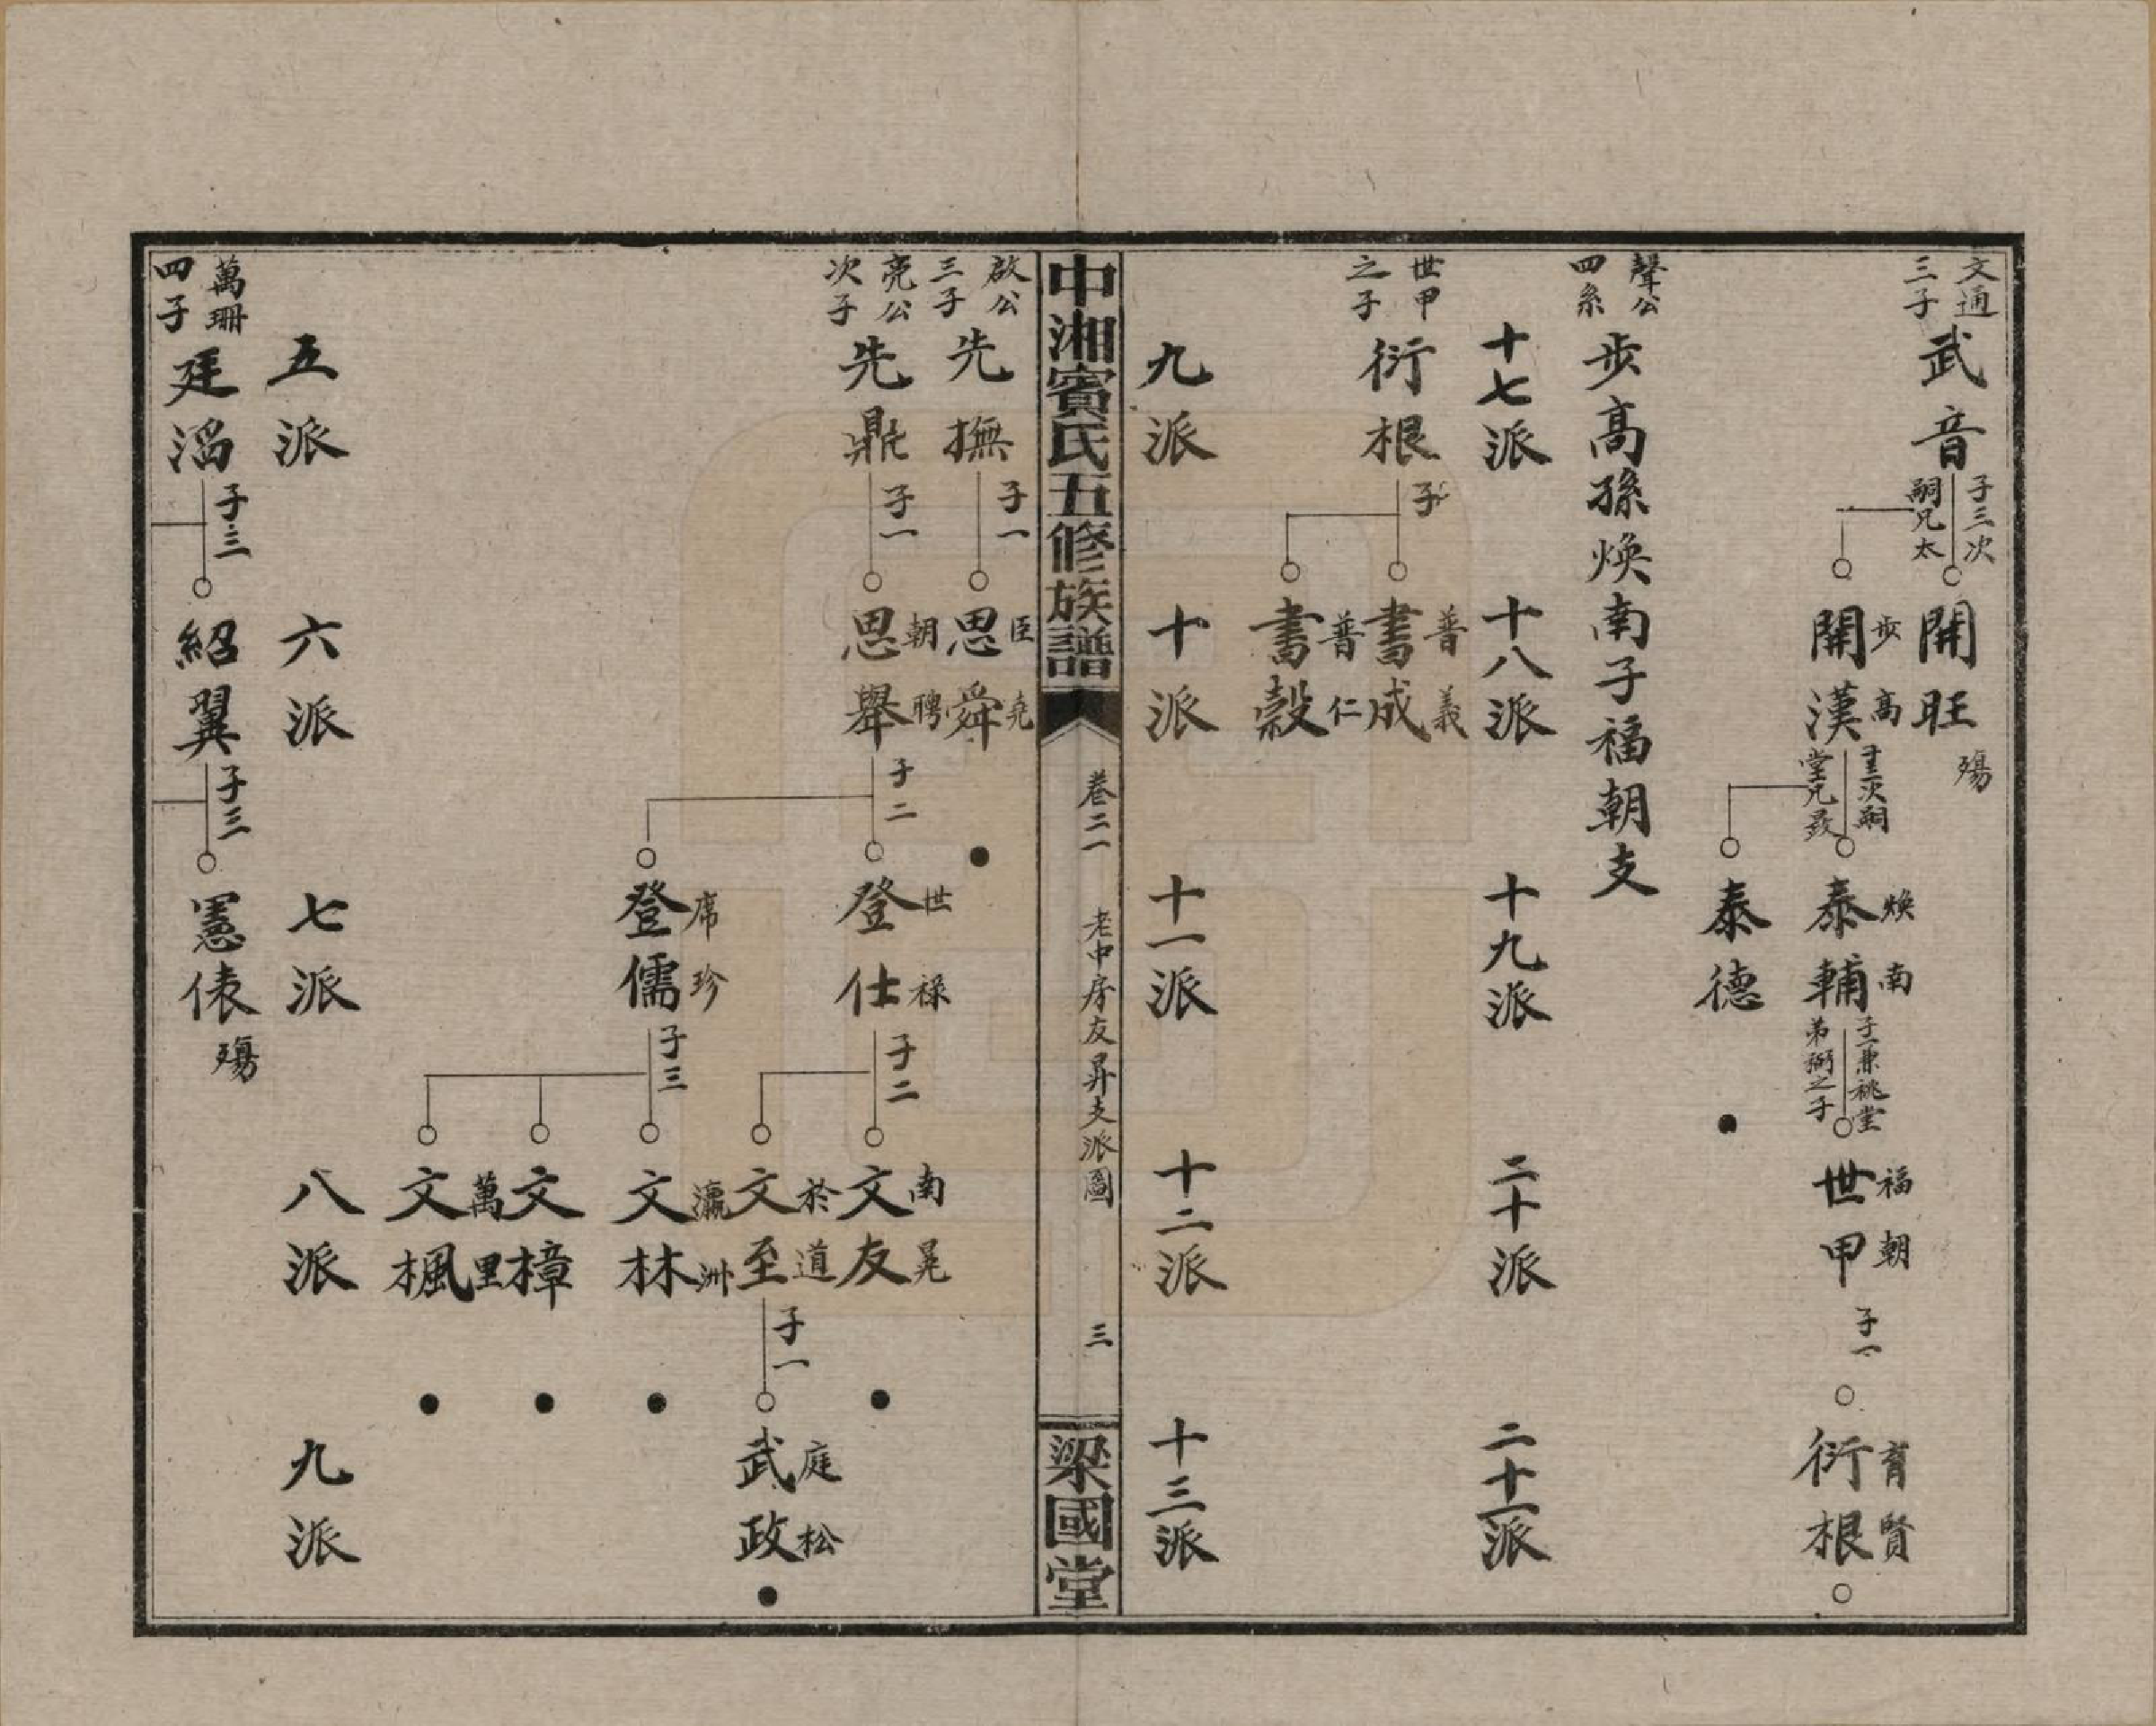 文通
三子
武音
子三次
嗣兄太
開旺
殤
開漢
步高
子三次嗣
堂兄
泰輔
煥南
子一兼祧堂
弟弼之子
世甲
福朝
子一
衍根
育賢
泰德
聲公
四系
步高孫煥南子福朝支
十七派
十八派
十九派
二十派
二十一派
世甲
之子
衍根
子
書成
普義
書穀
普仁
九派
十派
十一派
十二派
十三派
中湘賓氏五修族譜
卷二一
老中房友昇支派圖
三
梁國堂
啟公
三子
先撫
子一
思舜
臣堯
亮公
次子
先鼎
子一
思舉
朝聘
子二
登仕
世祿
子二
文友
南晃
文至
於道
子一
武政
庭松
登儒
席珍
子三
文林
瀛洲
文樟
文楓
萬里
五派
六派
七派
八派
九派
萬珊
四子
廷滔
子三
紹翼
子三
憲俵
殤